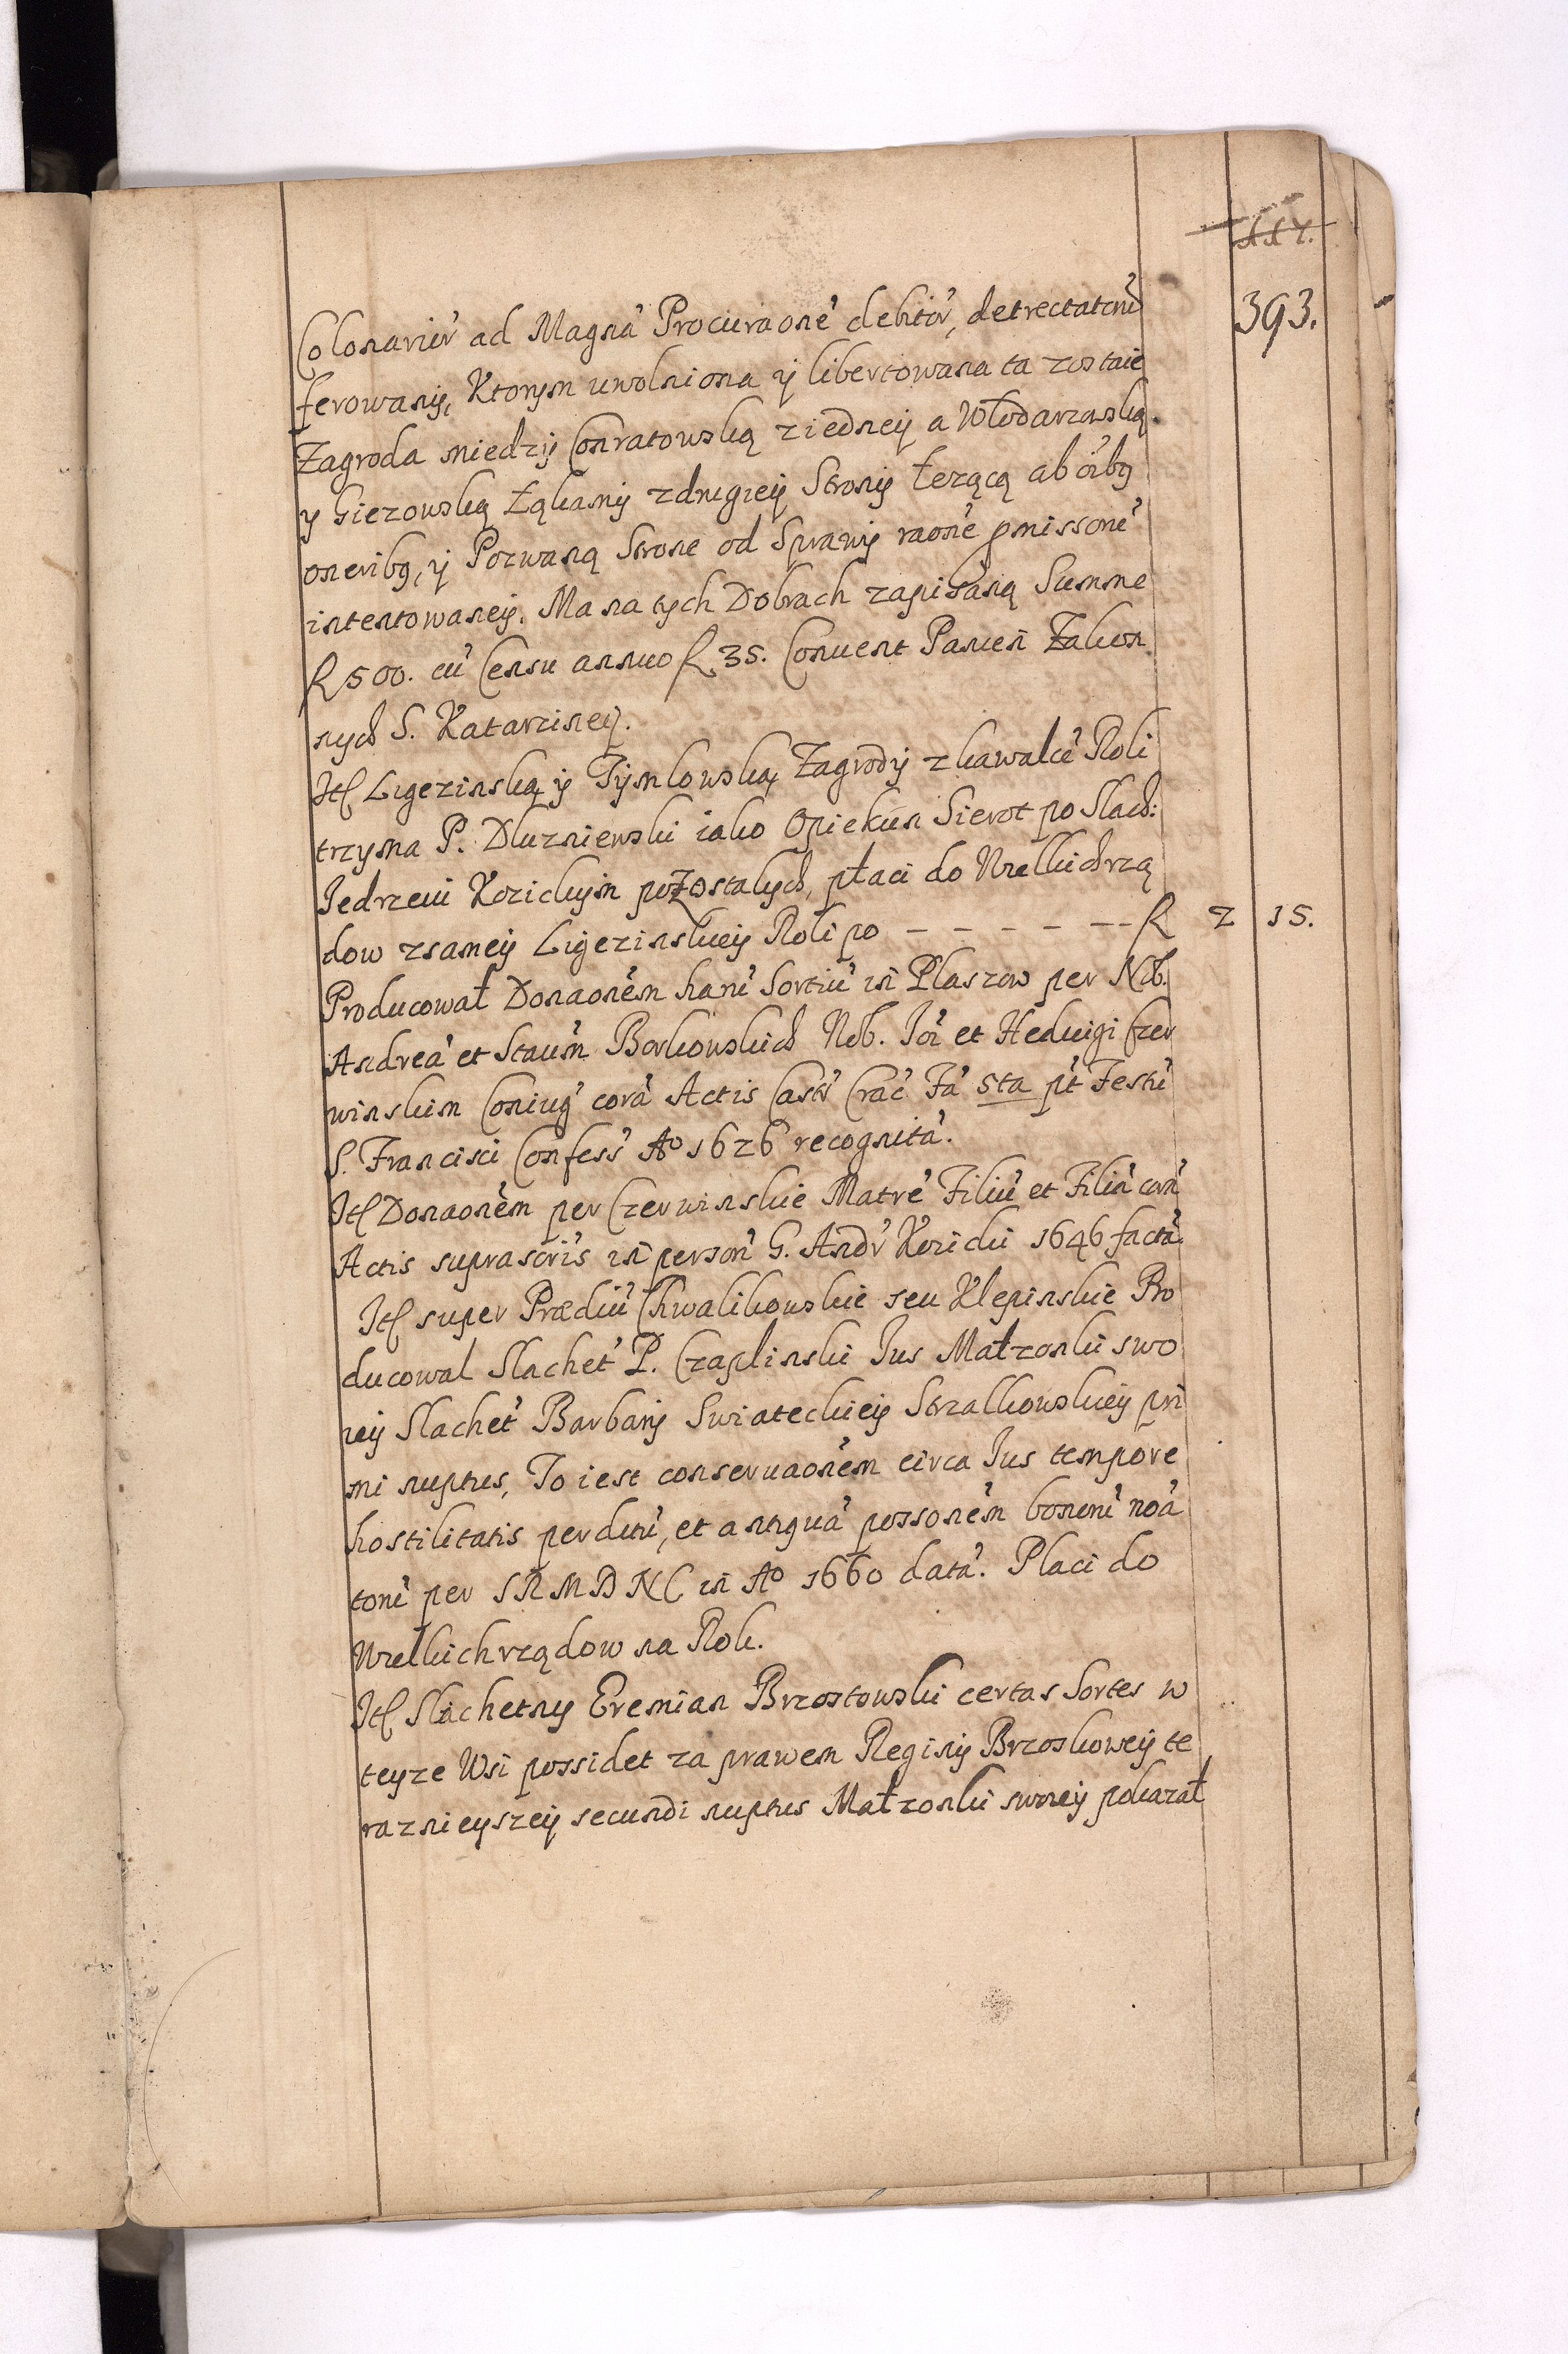 117.
393.
Colonariu' ad Magna' Procuraone' debitu', detrectatoru'
ferowany, Ktorym uwolniona y libertowana ta zostaie
Zagroda miedzy Conratowską ziedney a Włodarzowską.
y Giezowską Łąkamy zdrugiey Strony leżącą ab oi'bg
oneribg, y Pozwaną Strone od Sprawy raone' pmissone'
intentowaney. Ma na tych Dobrach zapisaną Summe
fl 500. cu' Censu annuo fl 35. Conuent Panien Zakon
nych S. Katarziney.
Itl Ligezinską y Tymlowską Zagrody zkawalce' Roli
trzyma P. Dluzniewski iako Opiekun Sierot po Slach:
Jedrzeiu Kozickym pozostalych, płaci do Wielkichrzą
dow zsamey Ligezinskiey Roli po — — — — — — fl 2 15.
Producował Donaone'm haru' Sortiu' in Plaszow per Nob.
Andrea' et Stau'm Borkowskich Nob. Joi' et Heduigi Czer
winskim Coniug' cora' Actis Castr' Crac' Fa' 5ta p't Festu'
S. Francisci Confess' Ao 1626 recognita'.
Itl Donaone'm per Czerwinskie Matre' Filiu' et Filia' cora'
Actis suprascri's in person' G. Andr' Kozicki 1646 facta'.
Itl super Prædiu' Chwalikowskie seu Klepinskie Pro
ducowal Slachet' P. Czaplinski Jus Małzonki swo
iey Slachet' Barbary Swiateckiey Strzalkowskiey pri
mi nuptus, To iest conseruaone'm circa Jus tempore
hostilitatis perditu', et antiqua' possone'm bonoru' noa'
toru' per S R M D N C in Ao 1660 data'. Placi do
Wielkichrządow na Rok.
Itl Slachetny Eremian Brzostowski certas Sortes w
teyze Wsi possidet za prawem Reginy Brzoskowey te
raznieyszey secundi nuptus Małzonki swoiey pokazał